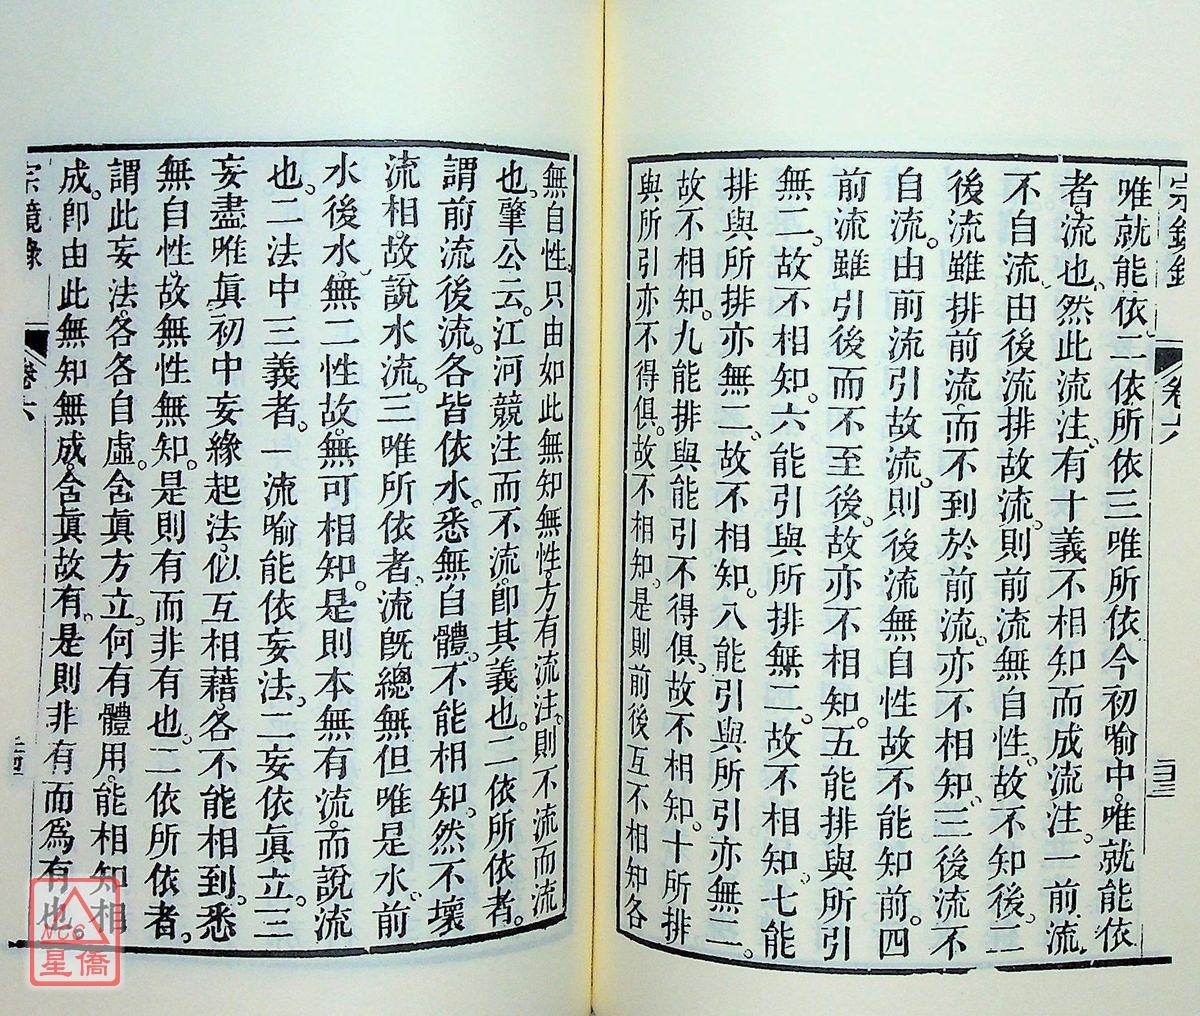 宗鏡錄 卷六
唯就能依。二依所依。三唯所依。今初喻中。唯就能依
者。流也。然此流注。有十義不相知而成流注。一前流
不自流。由後流排故流。則前流無自性。故不知後。二
後流雖排前流。而不到於前流。亦不相知。三後流不
自流。由前流引故流。則後流無自性。故不能知前。四
前流雖引後而不至後。故亦不相知。五能排與所引
無二。故不相知。六能引與所排無二。故不相知。七能
排與所排亦無二。故不相知。八能引與所引亦無二。
故不相知。九能排與能引不得俱。故不相知。十所排
與所引亦不得俱。故不相知。是則前後互不相知。各
無自性。只由如此無知無性。方有流注。則不流而流
也。肇公云。江河競注而不流。即其義也。二依所依者。
謂前流後流。各皆依水。悉無自體。不能相知。然不壞
流相。故說水流。三唯所依者。流既總無。但唯是水。前
水後水。無二性故。無可相知。是則本無有流。而說流
也。二法中三義者。一流喻能依妄法。二妄依真立。三
妄盡唯真。初中妄緣起法。似互相藉。各不能相到。悉
無自性。故無性無知。是則有而非有也。二依所依者。
謂此妄法。各各自虛。含真方立。何有體用。能相知相
成。即由此無知無成。含真故有。是則非有而為有也。
宗鏡錄 卷六
NCC
星僑